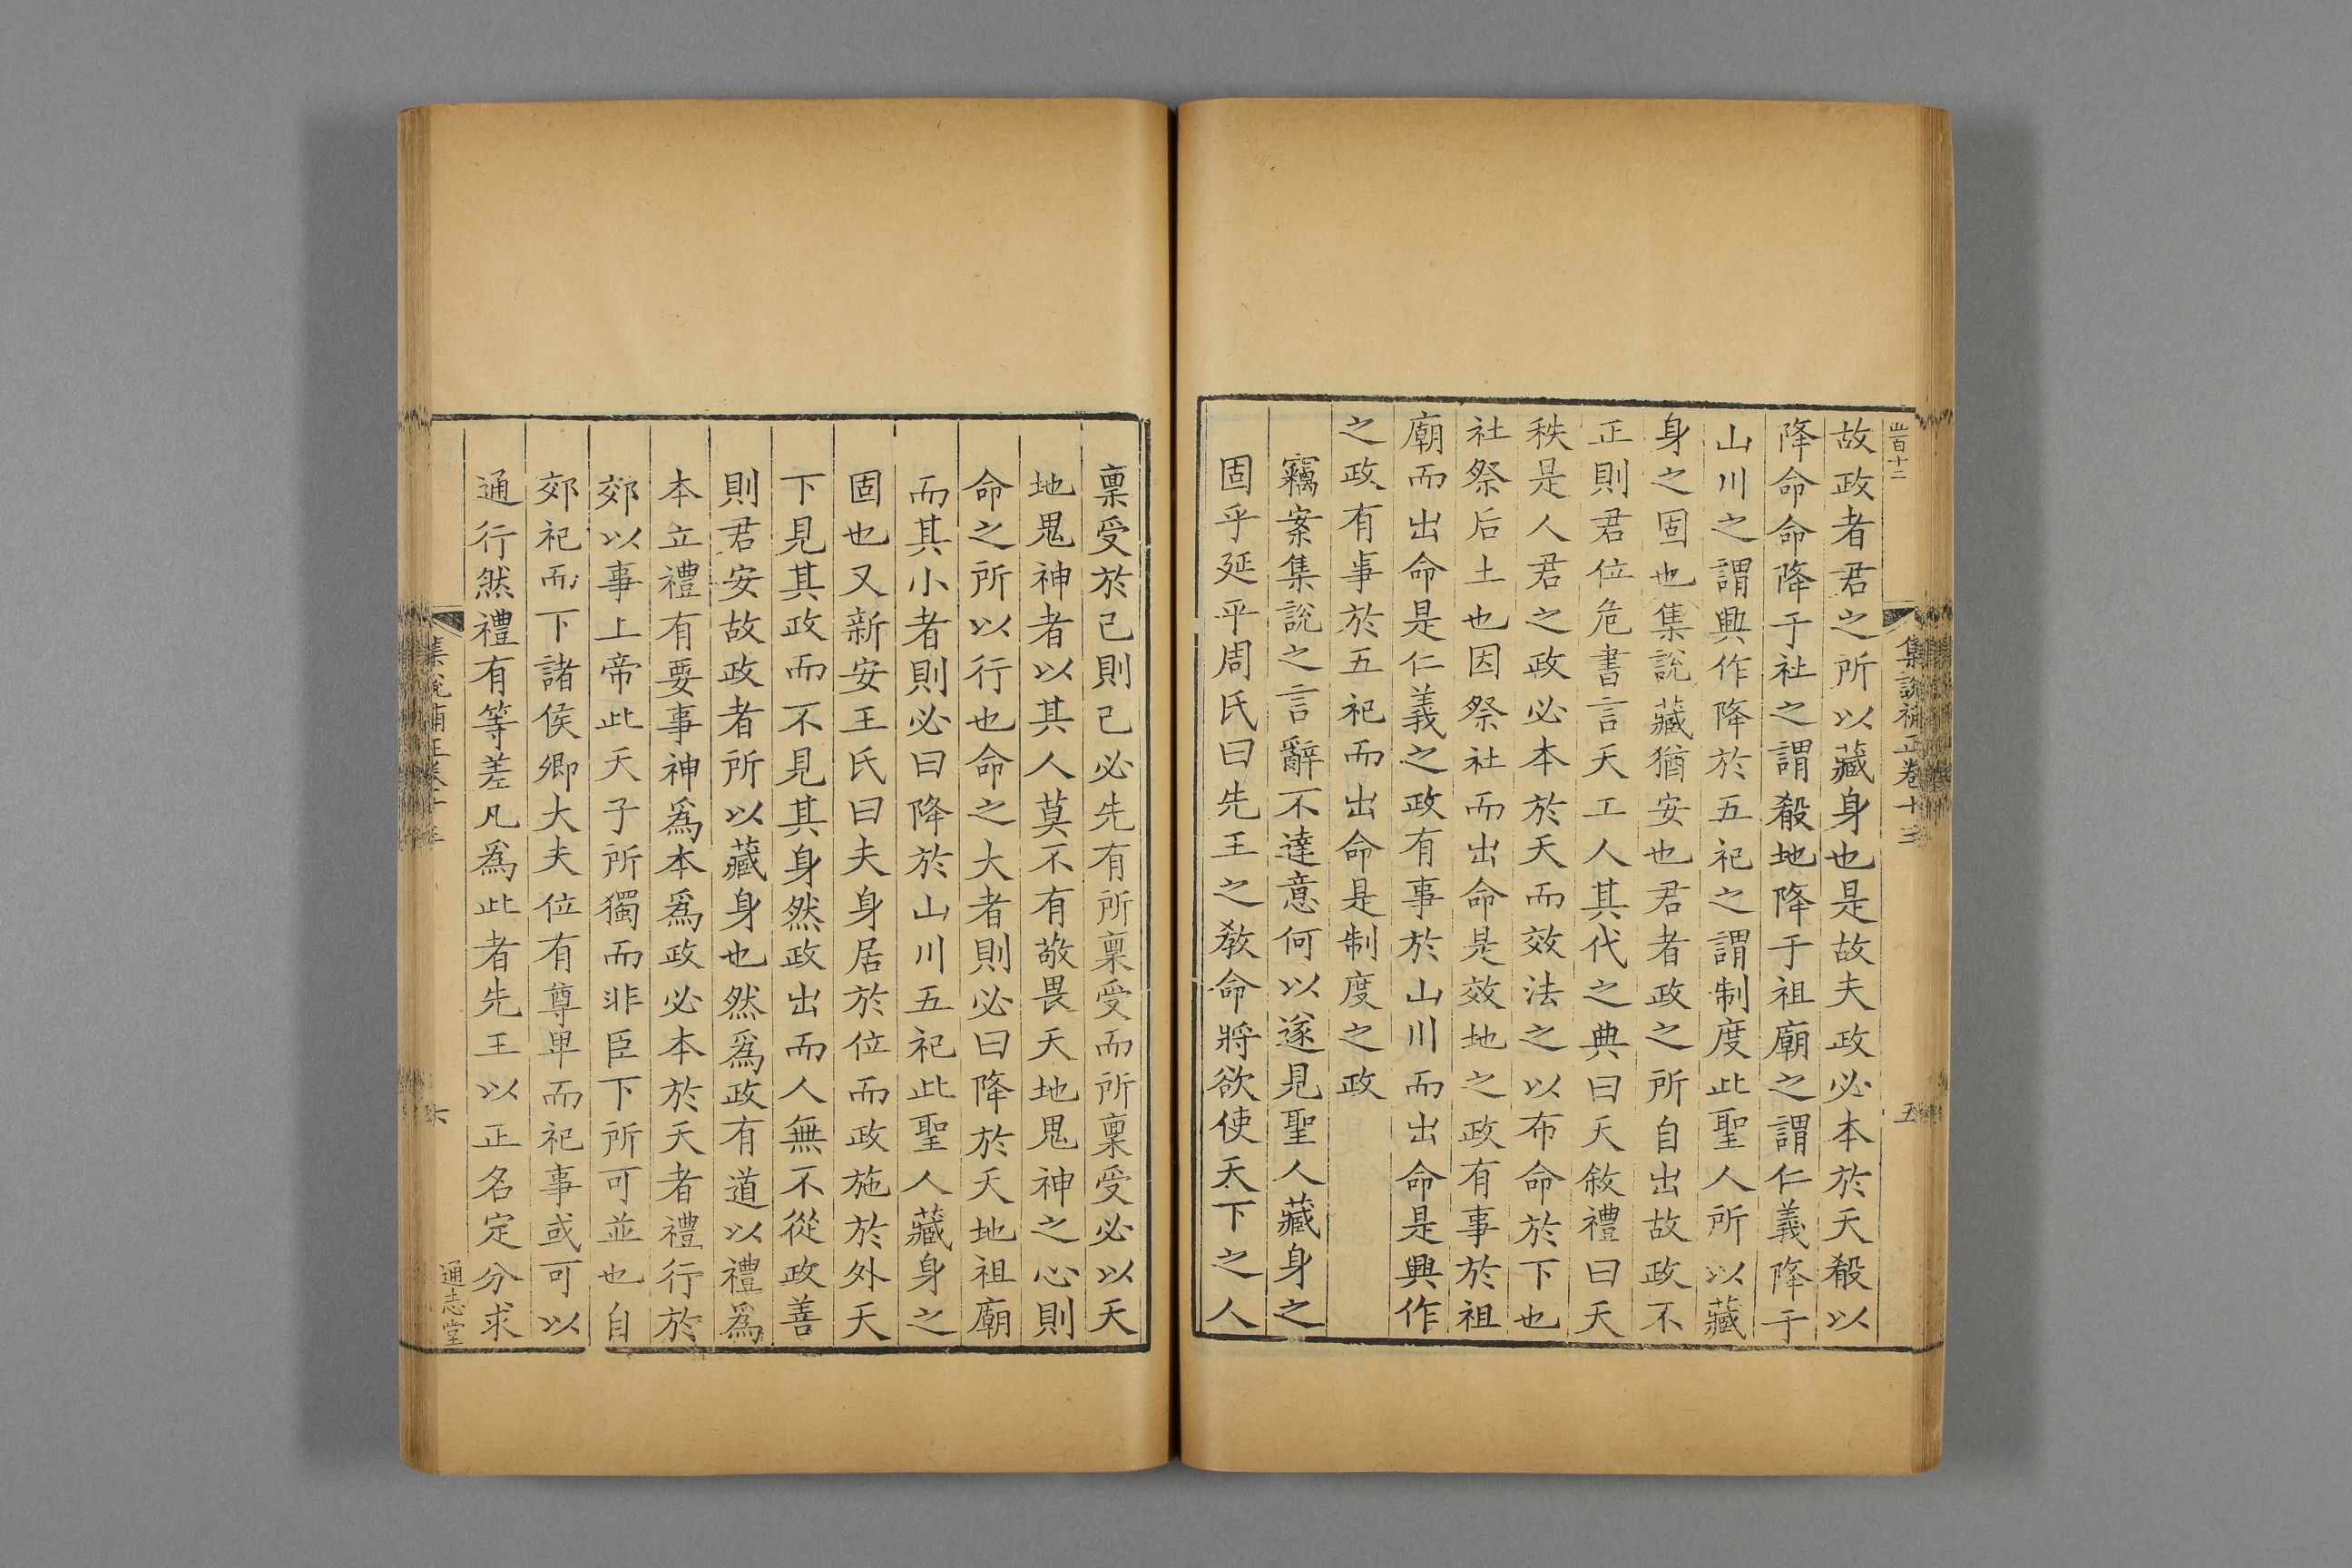 集說補正卷十三
五
故政者君之所以藏身也是故夫政必本於天殽以
降命命降于社之謂殽地降于祖廟之謂仁義降于
山川之謂興作降於五祀之謂制度此聖人所以藏
身之固也集說藏猶安也君者政之所自出故政不
正則君位危書言天工人其代之典曰天敘禮曰天
秩是人君之政必本於天而效法之以布命於下也
社祭后土也因祭社而出命是效地之政有事於祖
廟而出命是仁義之政有事於山川而出命是興作
之政有事於五祀而出命是制度之政
竊案集說之言辭不達意何以遂見聖人藏身之
固乎延平周氏曰先王之敎命將欲使天下之人
稟受於己則己必先有所稟受而所稟受必以天
地鬼神者以其人莫不有敬畏天地鬼神之心則
命之所以行也命之大者則必曰降於天地祖廟
而其小者則必曰降於山川五祀此聖人藏身之
固也又新安王氏曰夫身居於位而政施於外天
下見其政而不見其身然政出而人無不從政善
則君安故政者所以藏身也然爲政有道以禮爲
本立禮有要事神爲本爲政必本於天者禮行於
郊以事上帝此天子所獨而非臣下所可並也自
郊祀而下諸侯卿大夫位有尊卑而祀事或可以
通行然禮有等差凡爲此者先王以正名定分求
六
通志堂